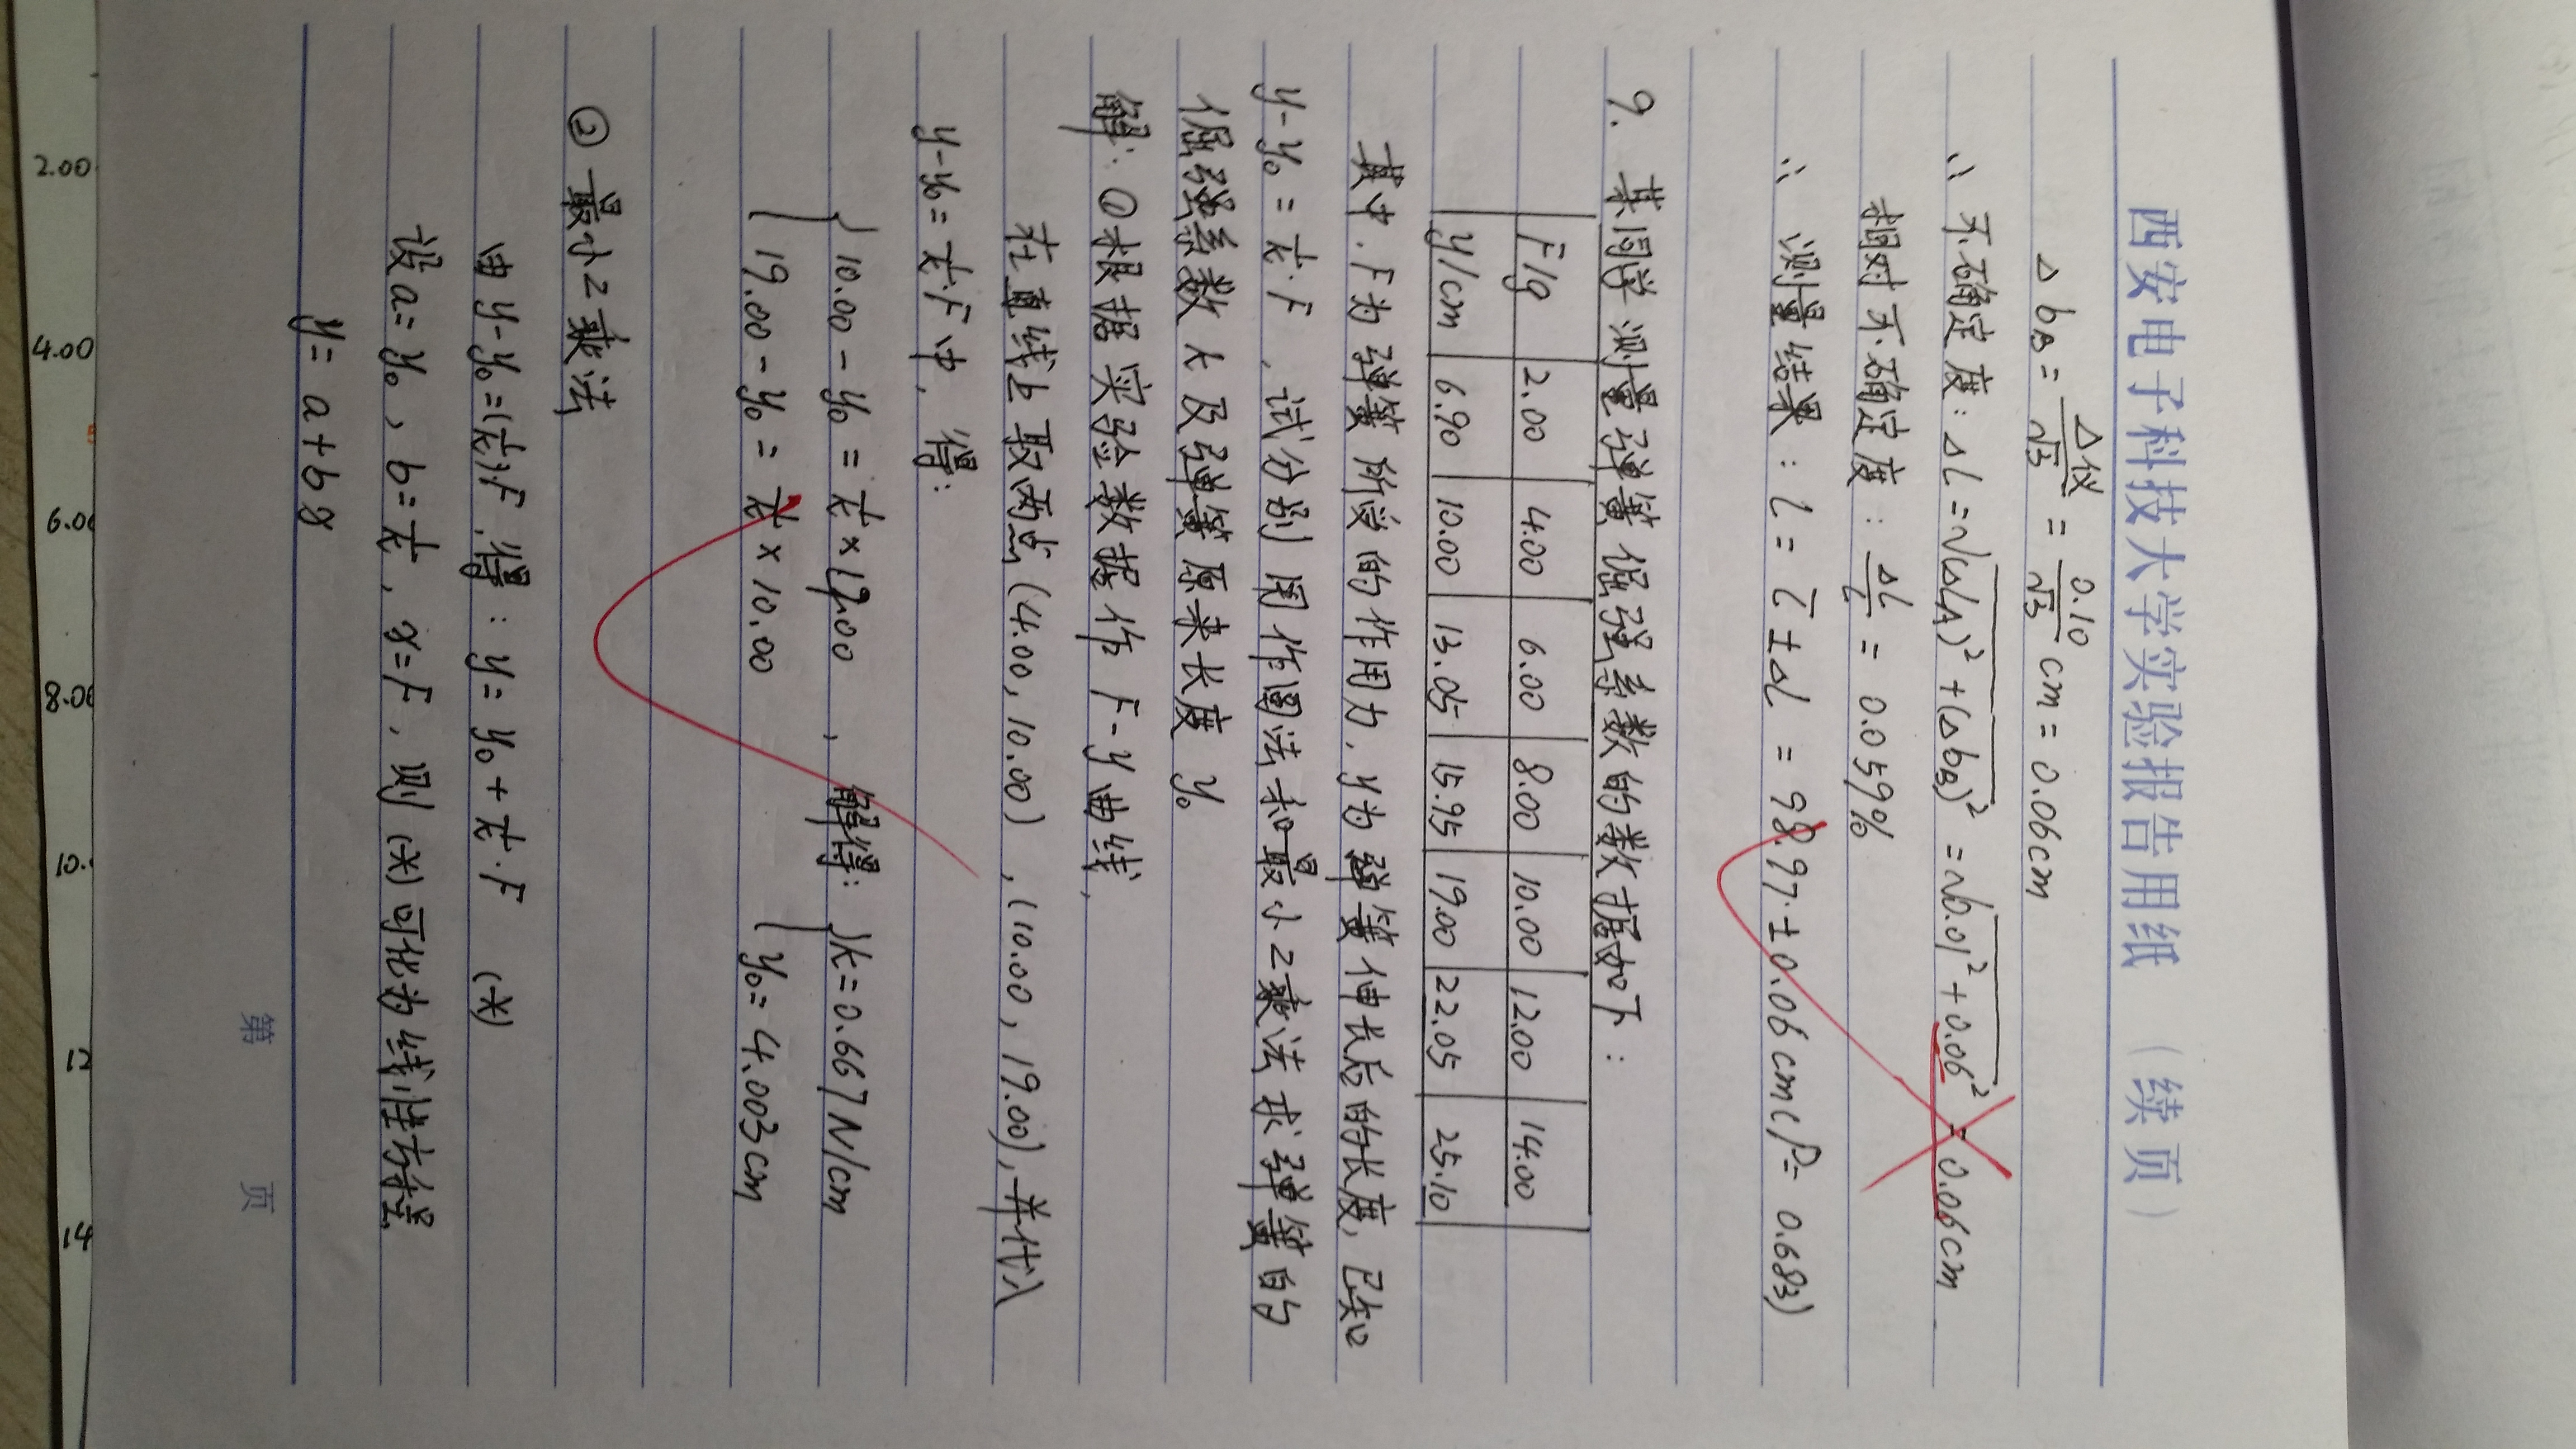 西安电子科技大学实验报告用纸（续页）
Δb_B = Δ仪/√3 = 0.10/√3 cm = 0.06cm
∴ 不确定度: ΔL = √(ΔL_A)² + (Δb_B)² = √0.01² + 0.06² = 0.06cm
相对不确定度: ΔL/L = 0.059%
∴ 测量结果: L = L̄ ± ΔL = 98.97 ± 0.06cm (P = 0.683)
9. 某同学测量弹簧倔强系数的数据如下:
F/g 2.00 4.00 6.00 8.00 10.00 12.00 14.00
y/cm 6.90 10.00 13.05 15.95 19.00 22.05 25.10
其中. F为弹簧所受的作用力, y为弹簧伸长后的长度, 已知
y-y₀ = 1/k·F , 试分别用作图法和最小二乘法求弹簧的
倔强系数k及弹簧原来长度 y₀
解: ①根据实验数据作F-y曲线,
在直线上取两点(4.00, 10.00), (10.00, 19.00), 并代入
y-y₀ = 1/k·F中, 得:
{ 10.00 - y₀ = 1/k × .00 , 解得: { k = 0.667N/cm
{ 19.00 - y₀ = 1/k × 10.00 { y₀ = 4.003cm
② 最小二乘法
由 y-y₀=(1/k)·F, 得: y = y₀ + 1/k·F (*)
设a = y₀, b = 1/k, x = F, 则(*)可化为线性方程
y = a + bx
第 页
2.00
4.00
6.00
8.00
10.
12
14